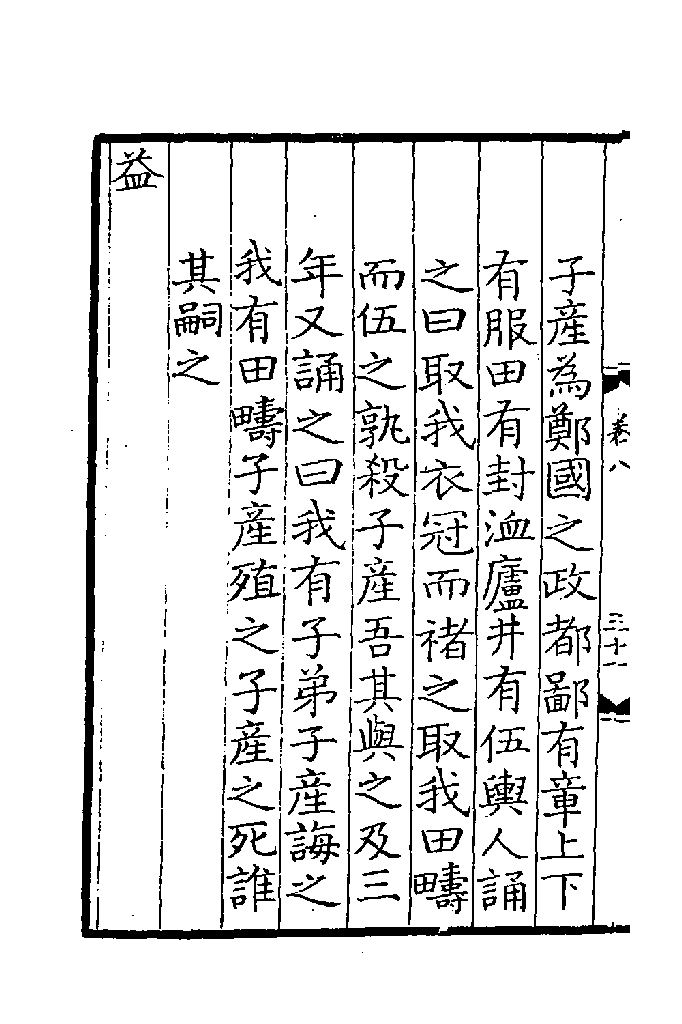 卷八
三十一
子產為鄭國之政都鄙有章上下
有服田有封洫廬井有伍輿人誦
之曰取我衣冠而褚之取我田疇
而伍之孰殺子產吾其與之及三
年又誦之曰我有子弟子產誨之
我有田疇子產殖之子產之死誰
其嗣之
益